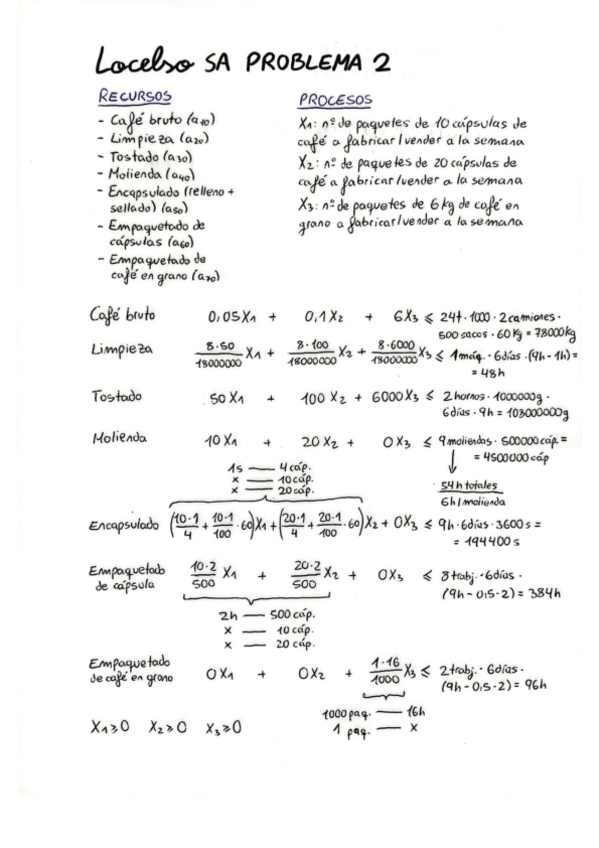 Locelso SA PROBLEMA 2
RECURSOS
- Café bruto (a10)
- Limpieza (a20)
- Tostado (a30)
- Molienda (a40)
- Encapsulado (relleno +
sellado) (a50)
- Empaquetado de
cápsulas (a60)
- Empaquetado de
café en grano (a70)
PROCESOS
X1: nº de paquetes de 10 cápsulas de
café a fabricar/vender a la semana
X2: nº de paquetes de 20 cápsulas de
café a fabricar/vender a la semana
X3: nº de paquetes de 6 kg de café en
grano a fabricar/vender a la semana
Café bruto 0,05X1 + 0,1X2 + 6X3 ≤ 24t·1000·2camiones·
500 sacos·60Kg = 78000kg
Limpieza 8·50/18000000 X1 + 8·100/18000000 X2 + 8·6000/18000000 X3 ≤ 1máq.·6días·(9h-1h)=
= 48h
Tostado 50X1 + 100X2 + 6000X3 ≤ 2hornos·1000000g·
6días·9h = 108000000g
Molienda 10X1 + 20X2 + 0X3 ≤ 9moliendas·500000cáp.=
= 4500000cáp
54h totales
6h/molienda
1s — 4cáp.
x — 10cáp.
x — 20cáp.
Encapsulado (10·1/4 + 10·1/100·60)X1 + (20·1/4 + 20·1/100·60)X2 + 0X3 ≤ 9h·6días·3600s =
= 194400s
Empaquetado
de cápsula 10·2/500 X1 + 20·2/500 X2 + 0X3 ≤ 8trabj.·6días·
(9h-0,5·2) = 384h
2h — 500cáp.
x — 10cáp.
x — 20cáp.
Empaquetado
de café en grano 0X1 + 0X2 + 1·16/1000 X3 ≤ 2trabj.·6días·
(9h-0,5·2) = 96h
1000paq. — 16h
1 paq. — x
X1≥0 X2≥0 X3≥0